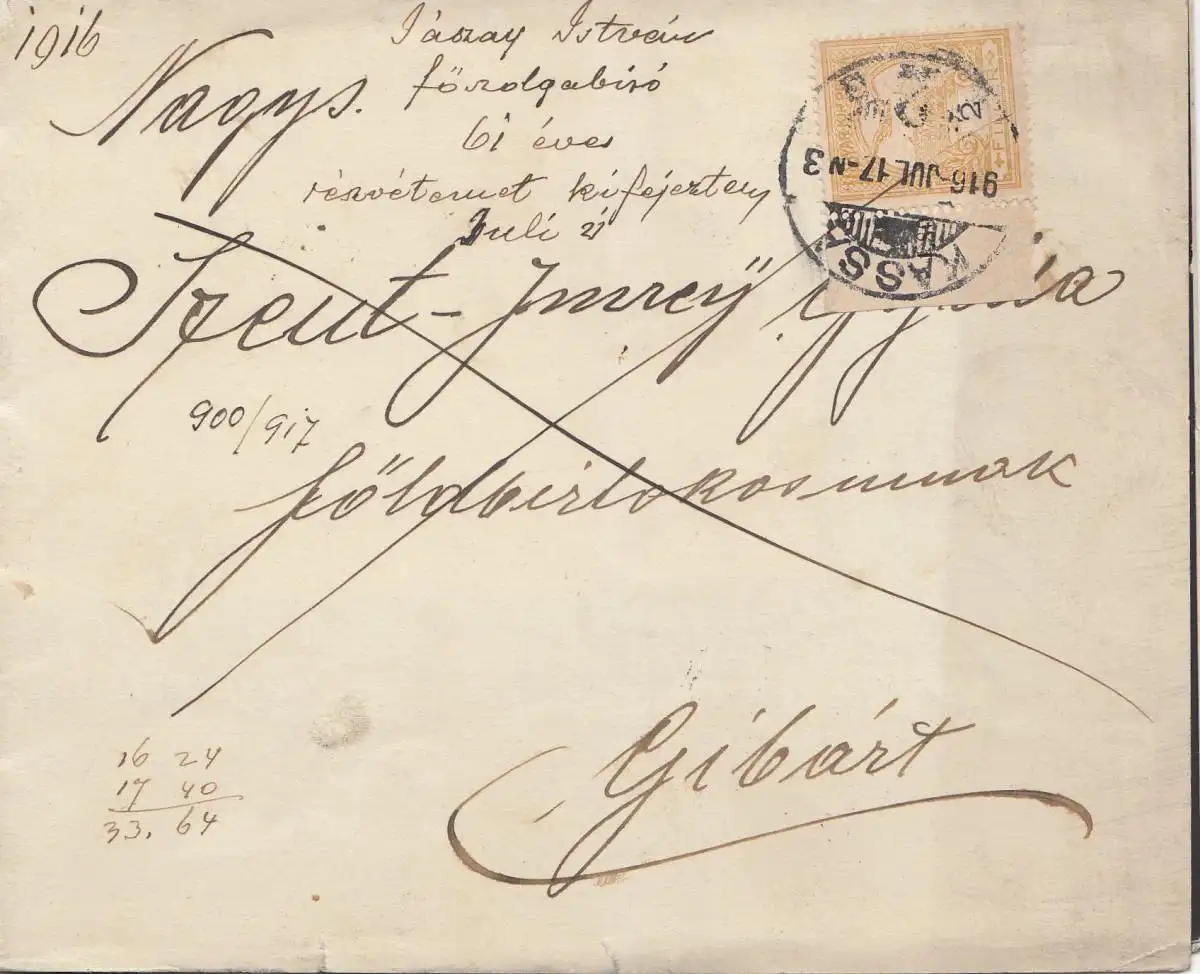 1916
Jászay István
főszolgabiró
61 éves
részvétemet kifejeztem
Juli 21
Nagys.
Szent-Imrey Gyula
földbirtokosnak
900/917
Gibárt
16 24
17 40
33. 64
916 JUL. 17-N 3
KASSA